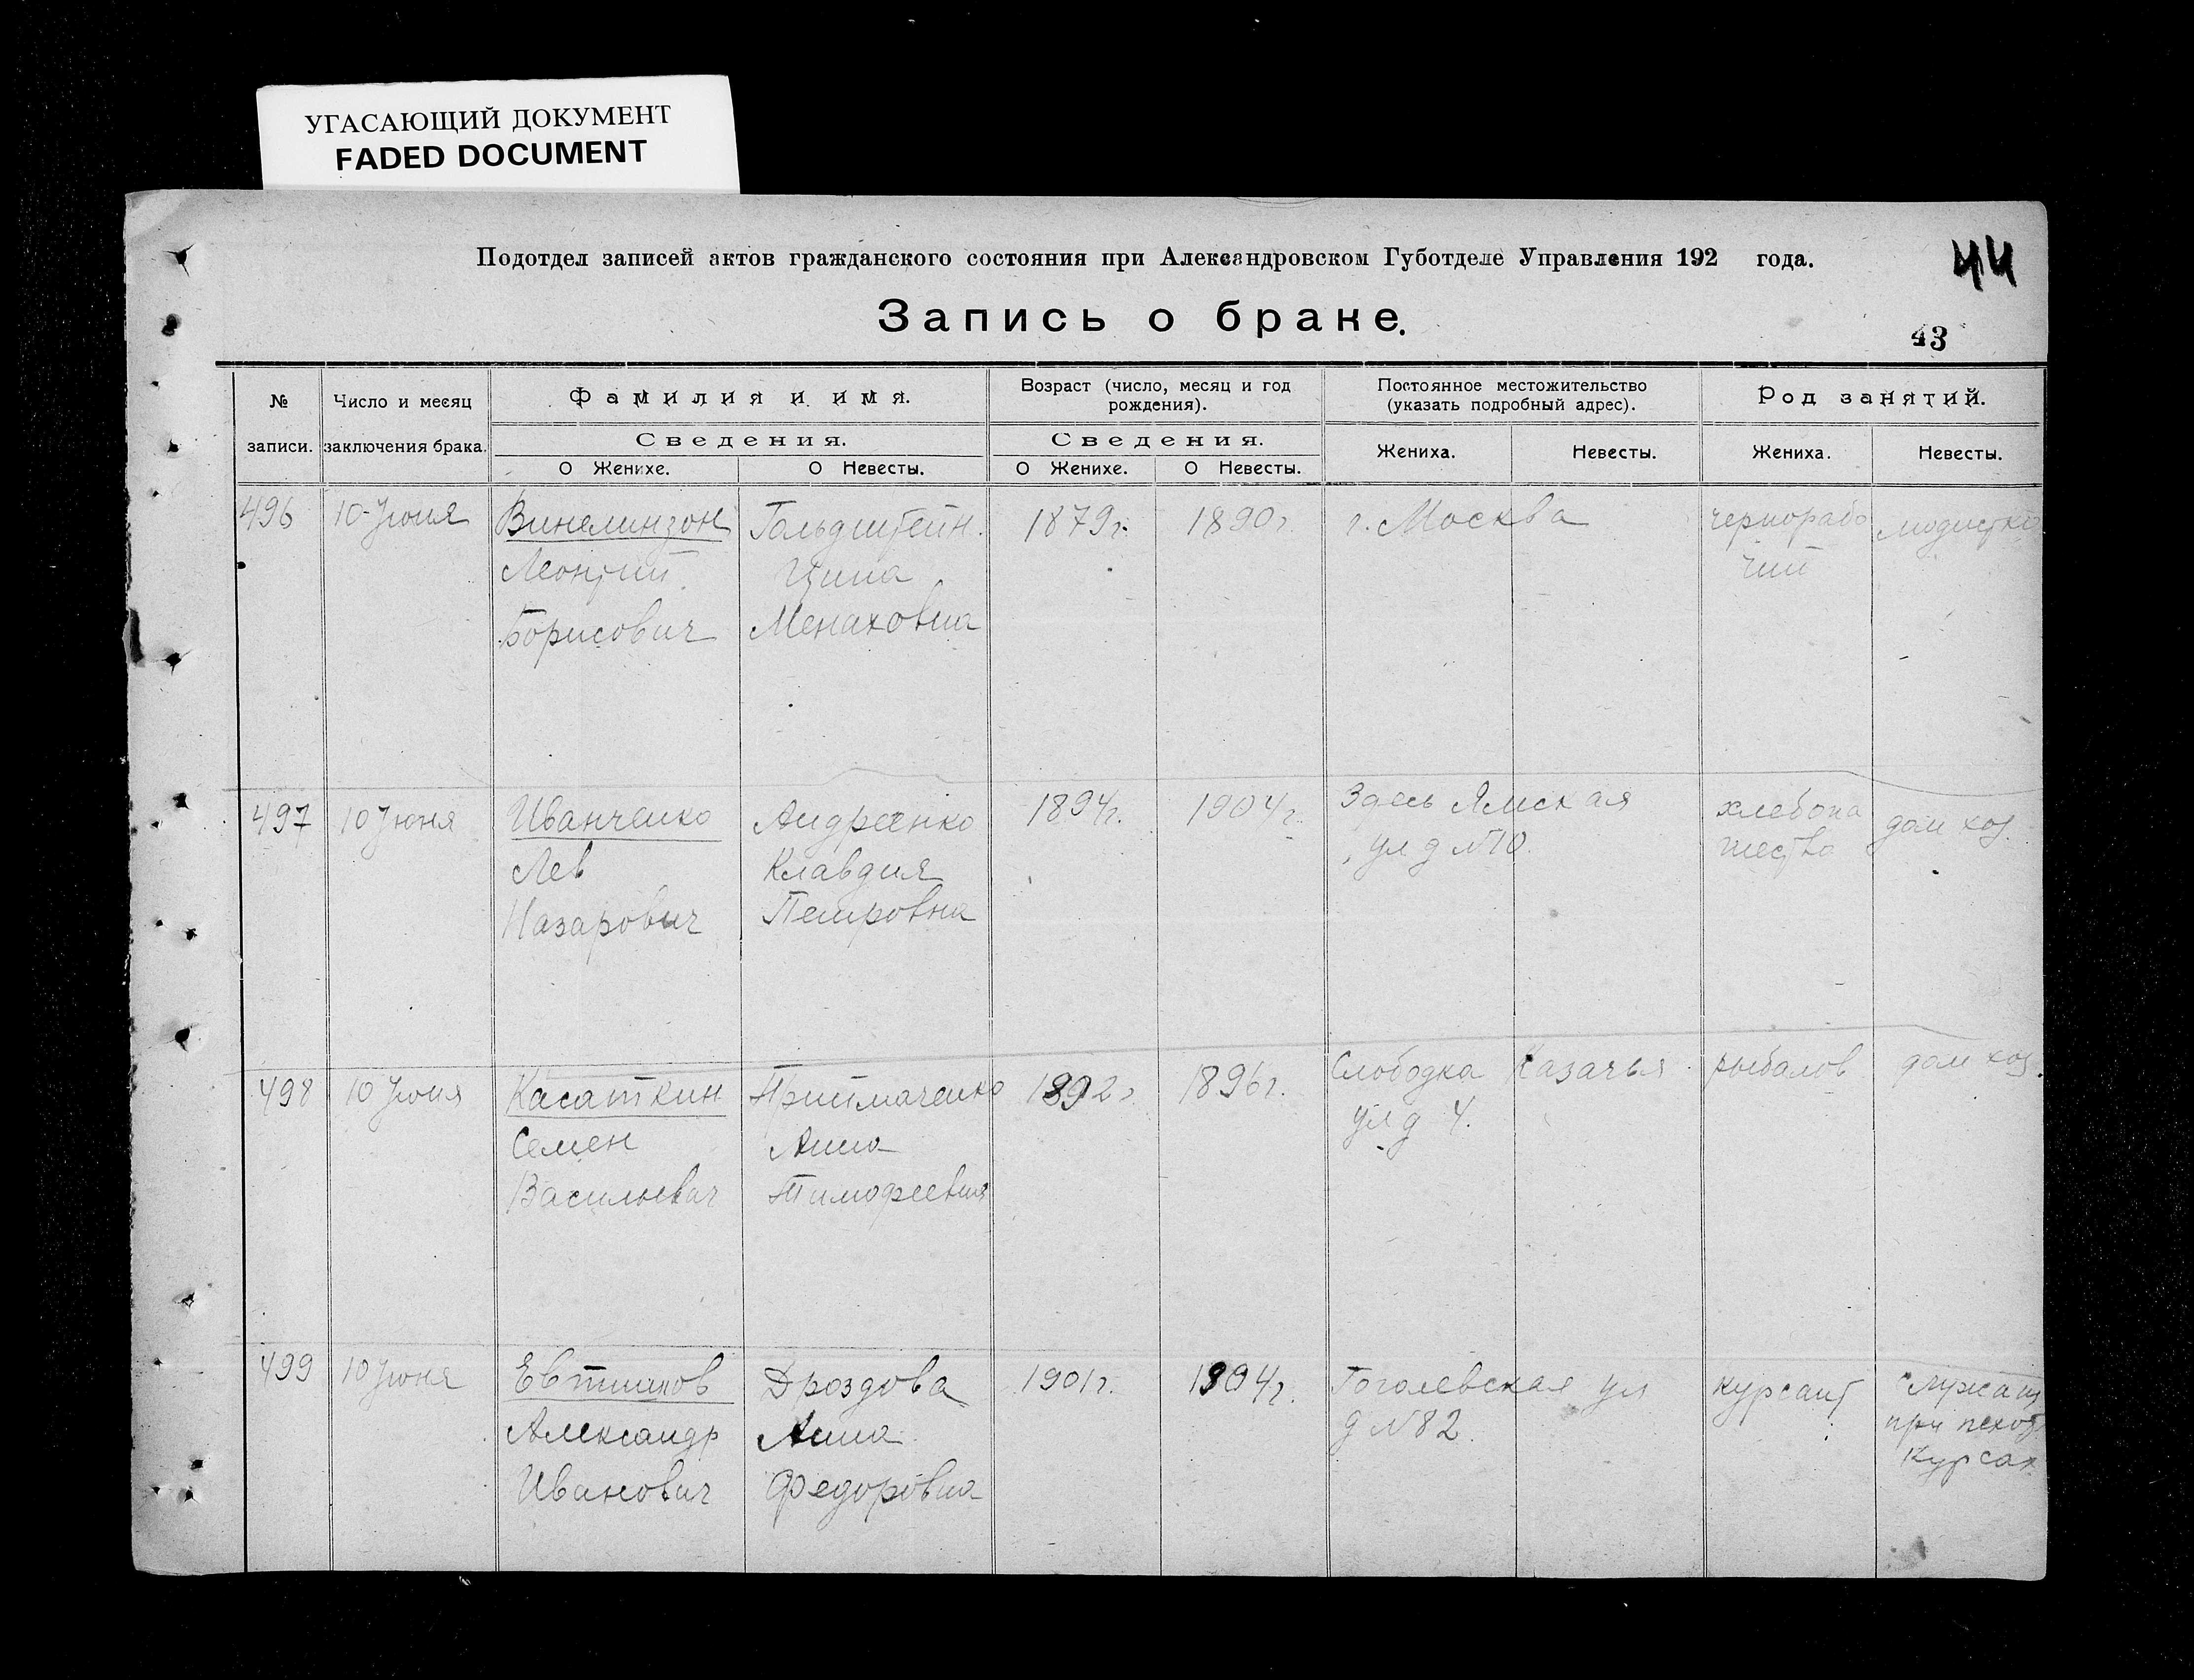 УГАСАЮЩИЙ ДОКУМЕНТ
FADED DOCUMENT
Подотдел записей актов гражданского состояния при Александровском Губотделе Управления 192 года.
44
Запись о браке.
43
№ записи.
Число и месяц заключения брака.
Фамилия и имя.
Сведения.
О Женихе.
О Невесты.
Возраст (число, месяц и год рождения).
Сведения.
О Женихе.
О Невесты.
Постоянное местожительство (указать подробный адрес).
Жениха.
Невесты.
Род занятий.
Жениха.
Невесты.
496
10 Июня
Винелинзон
Леонтий
Борисович
Гольдштейн
Ципа
Менаховна
1879г.
1890г
г. Москва
чернорабо
чий
модистка
497
10 Июня
Иванченко
Лев
Назарович
Андреенко
Клавдия
Петровна
1894г.
1904г.
Здесь Ямская
ул д №10.
хлебопа
шество
дом хоз.
498
10 Июня
Касаткин
Семен
Васильевич
Приймаченко
Анна
Тимофеевна
1892г
1896г.
Слободка Казачья
ул д 4.
рыбалов
дом хоз.
499
10 Июня
Александр
Иванович
Дроздова
Анна
Федоровна
1901г.
1904г.
Гоголевская ул
д №82.
курсант
служащ
при пехот
Курсах